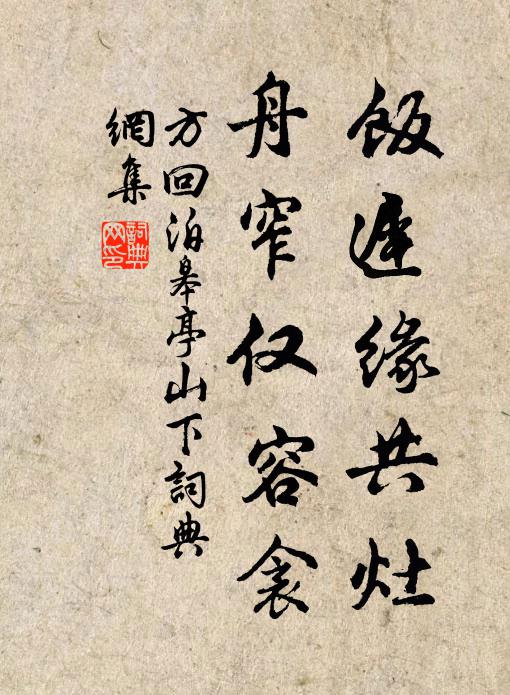 飯遲緣共灶
舟窄仅容衾
方回泊皋亭山下詞典
網集
詞典
网印